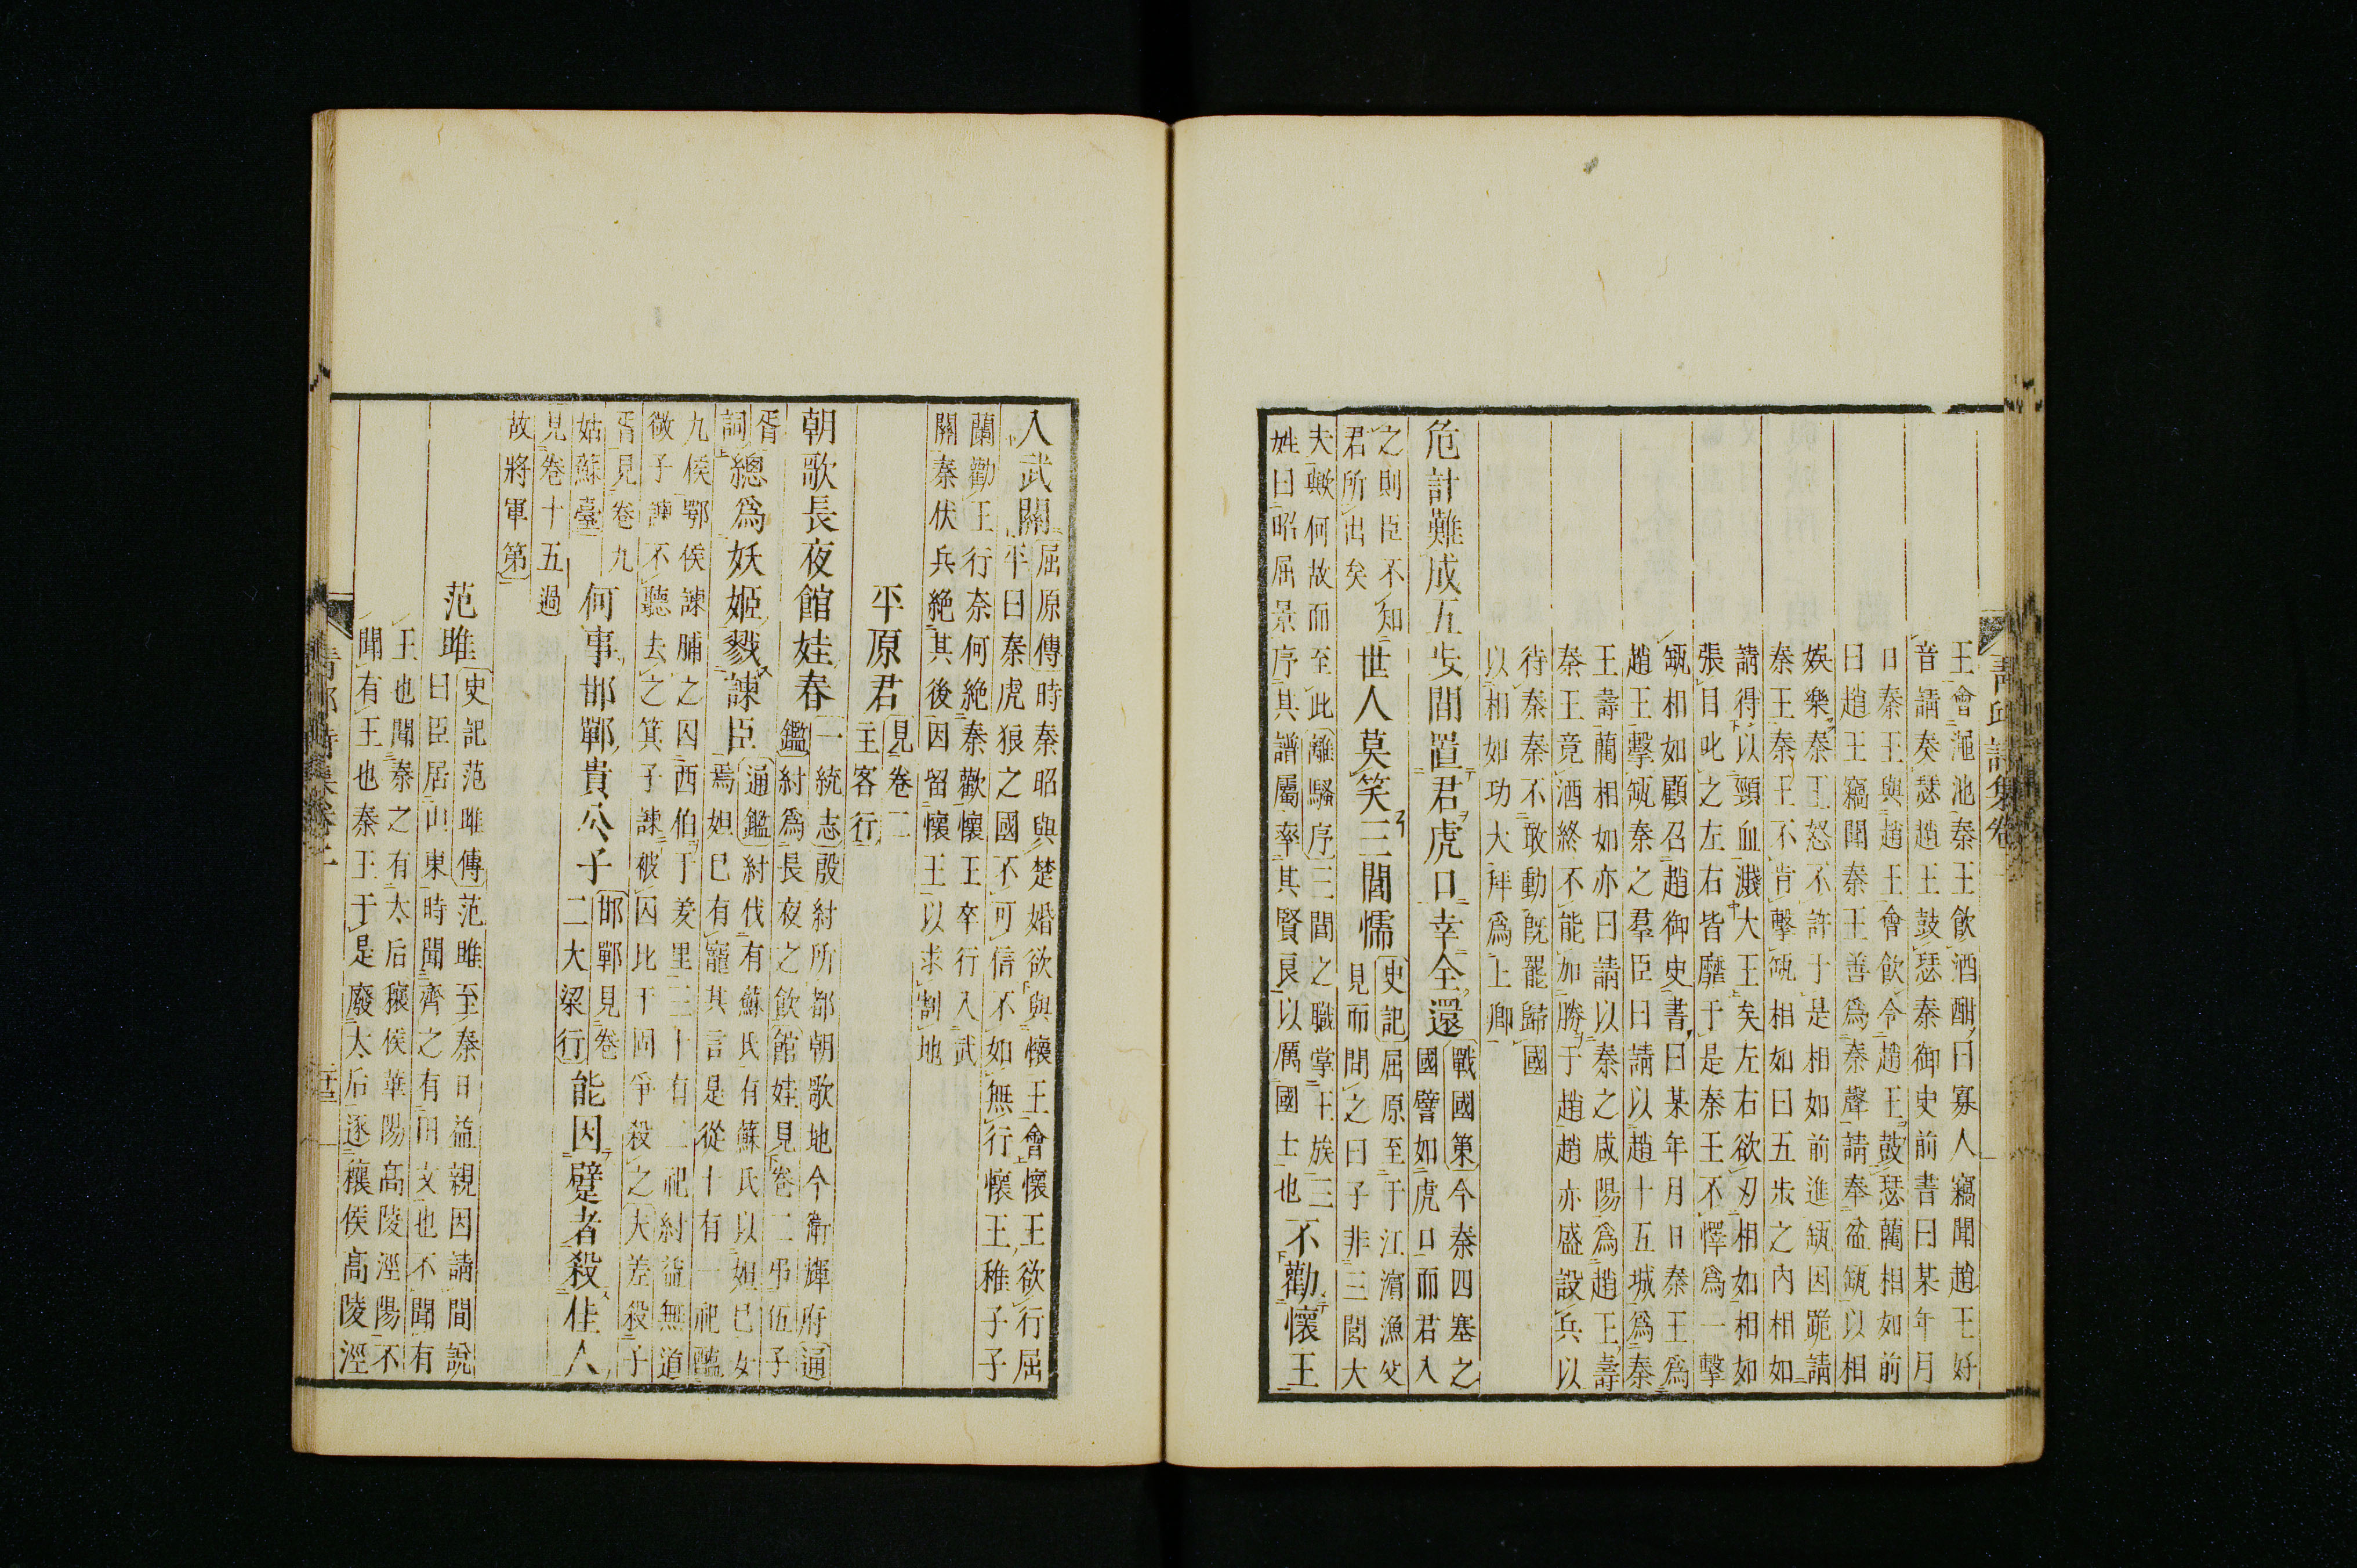 王會澠池秦王飲酒酣曰寡人竊聞趙王好
音請奏瑟趙王鼓瑟秦御史前書曰某年月
日秦王與趙王會飲令趙王鼓瑟藺相如前
曰趙王竊聞秦王善爲秦聲請奉盆缻以相
娛樂秦王怒不許于是相如前進缻因跪請
秦王秦王不肯擊缻相如曰五步之內相如
請得以頸血濺大王矣左右欲刃相如相如
張目叱之左右皆靡于是秦王不懌爲一擊
缻相如顧召趙御史書曰某年月日秦王爲
趙王擊缻秦之羣臣曰請以趙十五城爲秦
王壽藺相如亦曰請以秦之咸陽爲趙王壽
秦王竟酒終不能加勝于趙趙亦盛設兵以
待秦秦不敢動既罷歸國
以相如功大拜爲上卿
危計難成五步間置君虎口幸全還戰國策今秦四塞之
國譬如虎口而君入
之則臣不知
君所出矣世人莫笑三閭懦史記屈原至于江濱漁父
見而問之曰子非三閭大
夫歟何故而至此離騷序三閭之職掌王族三
姓曰昭屈景序其譜屬率其賢良以厲國士也不勸懷王
入武關屈原傳時秦昭與楚婚欲與懷王會懷王欲行屈
平曰秦虎狼之國不可信不如無行懷王稚子子
蘭勸王行奈何絶秦歡懷王卒行入武
關秦伏兵絶其後因留懷王以求割地
平原君見卷二
主客行
朝歌長夜館娃春一統志殷紂所都朝歌地今衛輝府通
鑑紂爲長夜之飲館娃見卷二弔伍子
胥
詞總爲妖姬戮諫臣通鑑紂伐有蘇氏有蘇氏以妲己女
焉妲己有寵其言是從十有一祀醢
九侯鄂侯諫脯之囚西伯于羑里三十有二祀紂益無道
微子諫不聽去之箕子諫被囚比干固爭殺之夫差殺子
胥見卷九
姑蘇臺何事邯鄲貴公子邯鄲見卷
二大梁行能因躄者殺佳人
見卷十五過
故將軍第
范雎史記范雎傳范雎至秦日益親因請間說
曰臣居山東時聞齊之有田文也不聞有
王也聞秦之有太后穰侯華陽高陵涇陽不
聞有王也秦王于是廢太后逐穰侯高陵涇